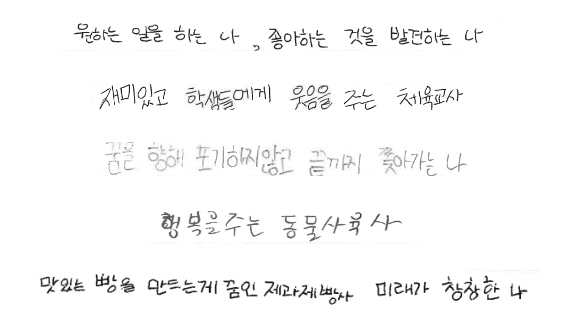 원하는 일을 하는 나, 좋아하는 것을 발견하는 나
재미있고 학생들에게 웃음을 주는 체육교사
꿈을 향해 포기하지않고 끝까지 쫓아가는 나
행복을주는 동물사육사
맛있는 빵을 만드는게 꿈인 제과제빵사 미래가 창창한 나